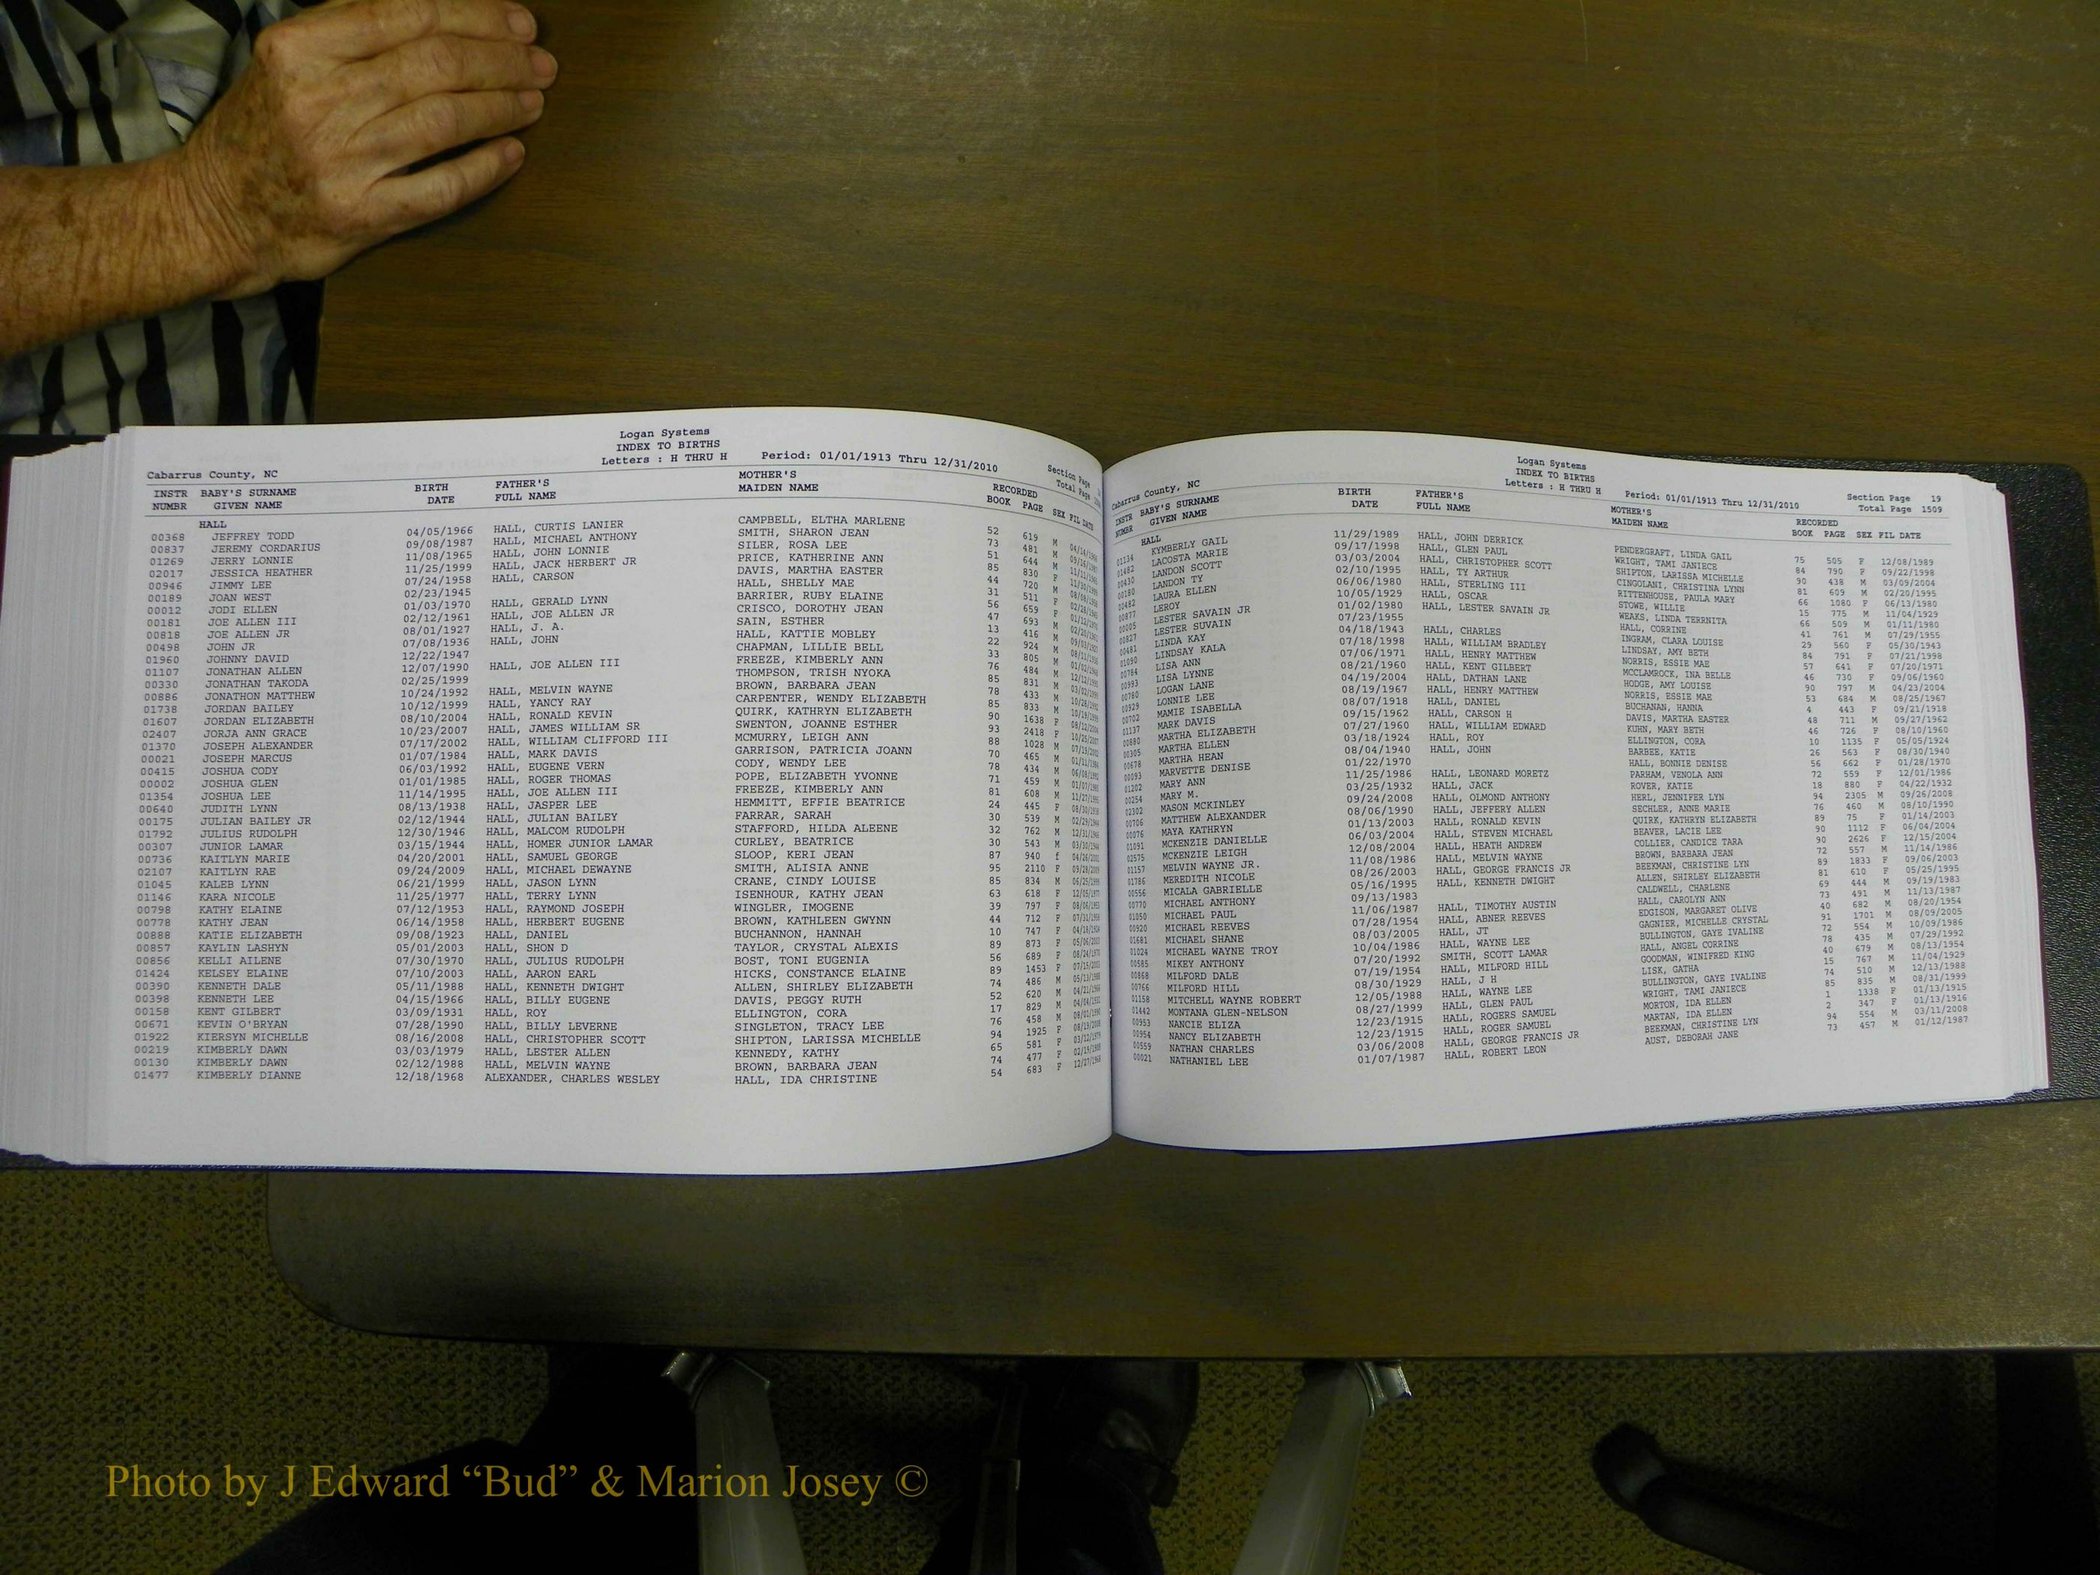 Logan Systems
INDEX TO BIRTHS
Cabarrus County, NC Letters : H THRU H Period: 01/01/1913 Thru 12/31/2010 Section Page
Total Page
INSTR BABY'S SURNAME BIRTH FATHER'S MOTHER'S RECORDED
NUMBR GIVEN NAME DATE FULL NAME MAIDEN NAME BOOK PAGE SEX FIL DATE
HALL
00368 JEFFREY TODD 04/05/1966 HALL, CURTIS LANIER CAMPBELL, ELTHA MARLENE 52 619 M
00837 JEREMY CORDARIUS 09/08/1987 HALL, MICHAEL ANTHONY SMITH, SHARON JEAN 73 481 M
01269 JERRY LONNIE 11/08/1965 HALL, JOHN LONNIE SILER, ROSA LEE 51 644 M
02017 JESSICA HEATHER 11/25/1999 HALL, JACK HERBERT JR PRICE, KATHERINE ANN 85 830 F
00946 JIMMY LEE 07/24/1958 HALL, CARSON DAVIS, MARTHA EASTER 44 720 M
00189 JOAN WEST 02/23/1945 HALL, SHELLY MAE 31 511 F
00012 JODI ELLEN 01/03/1970 HALL, GERALD LYNN BARRIER, RUBY ELAINE 56 659 F
00181 JOE ALLEN III 02/12/1961 HALL, JOE ALLEN JR CRISCO, DOROTHY JEAN 47 693 M
00818 JOE ALLEN JR 08/01/1927 HALL, J. A. SAIN, ESTHER 13 416 M
00498 JOHN JR 07/08/1936 HALL, JOHN HALL, KATTIE MOBLEY 22 924 M
01960 JOHNNY DAVID 12/22/1947 CHAPMAN, LILLIE BELL 33 805 M
01107 JONATHAN ALLEN 12/07/1990 HALL, JOE ALLEN III FREEZE, KIMBERLY ANN 76 484 M
00330 JONATHAN TAKODA 02/25/1999 THOMPSON, TRISH NYOKA 85 831 M
00886 JONATHON MATTHEW 10/24/1992 HALL, MELVIN WAYNE BROWN, BARBARA JEAN 78 433 M
01738 JORDAN BAILEY 10/12/1999 HALL, YANCY RAY CARPENTER, WENDY ELIZABETH 85 833 M
01607 JORDAN ELIZABETH 08/10/2004 HALL, RONALD KEVIN QUIRK, KATHRYN ELIZABETH 90 1638 F
02407 JORJA ANN GRACE 10/23/2007 HALL, JAMES WILLIAM SR SWENTON, JOANNE ESTHER 93 2418 F
01370 JOSEPH ALEXANDER 07/17/2002 HALL, WILLIAM CLIFFORD III MCMURRY, LEIGH ANN 88 1028 M
00021 JOSEPH MARCUS 01/07/1984 HALL, MARK DAVIS GARRISON, PATRICIA JOANN 70 465 M
00415 JOSHUA CODY 06/03/1992 HALL, EUGENE VERN CODY, WENDY LEE 78 434 M
00002 JOSHUA GLEN 01/01/1985 HALL, ROGER THOMAS POPE, ELIZABETH YVONNE 71 459 M
01354 JOSHUA LEE 11/14/1995 HALL, JOE ALLEN III FREEZE, KIMBERLY ANN 81 608 M
00640 JUDITH LYNN 08/13/1938 HALL, JASPER LEE HEMMITT, EFFIE BEATRICE 24 445 F
00175 JULIAN BAILEY JR 02/12/1944 HALL, JULIAN BAILEY FARRAR, SARAH 30 539 M
01792 JULIUS RUDOLPH 12/30/1946 HALL, MALCOM RUDOLPH STAFFORD, HILDA ALEENE 32 762 M
00307 JUNIOR LAMAR 03/15/1944 HALL, HOMER JUNIOR LAMAR CURLEY, BEATRICE 30 543 M
00736 KAITLYN MARIE 04/20/2001 HALL, SAMUEL GEORGE SLOOP, KERI JEAN 87 940 f
02107 KAITLYN RAE 09/24/2009 HALL, MICHAEL DEWAYNE SMITH, ALISIA ANNE 95 2110 F
01045 KALEB LYNN 06/21/1999 HALL, JASON LYNN CRANE, CINDY LOUISE 85 834 M
01146 KARA NICOLE 11/25/1977 HALL, TERRY LYNN ISENHOUR, KATHY JEAN 63 618 F
00798 KATHY ELAINE 07/12/1953 HALL, RAYMOND JOSEPH WINGLER, IMOGENE 39 797 F
00778 KATHY JEAN 06/14/1958 HALL, HERBERT EUGENE BROWN, KATHLEEN GWYNN 44 712 F
00888 KATIE ELIZABETH 09/08/1923 HALL, DANIEL BUCHANNON, HANNAH 10 747 F
00857 KAYLIN LASHYN 05/01/2003 HALL, SHON D TAYLOR, CRYSTAL ALEXIS 89 873 F
00856 KELLI AILENE 07/30/1970 HALL, JULIUS RUDOLPH BOST, TONI EUGENIA 56 689 F
01424 KELSEY ELAINE 07/10/2003 HALL, AARON EARL HICKS, CONSTANCE ELAINE 89 1453 F
00390 KENNETH DALE 05/11/1988 HALL, KENNETH DWIGHT ALLEN, SHIRLEY ELIZABETH 74 486 M
00398 KENNETH LEE 04/15/1966 HALL, BILLY EUGENE DAVIS, PEGGY RUTH 52 620 M
00158 KENT GILBERT 03/09/1931 HALL, ROY ELLINGTON, CORA 17 829 M
00671 KEVIN O'BRYAN 07/28/1990 HALL, BILLY LEVERNE SINGLETON, TRACY LEE 76 458 M
01922 KIERSYN MICHELLE 08/16/2008 HALL, CHRISTOPHER SCOTT SHIPTON, LARISSA MICHELLE 94 1925 F
00219 KIMBERLY DAWN 03/03/1979 HALL, LESTER ALLEN KENNEDY, KATHY 65 581 F
00130 KIMBERLY DAWN 02/12/1988 HALL, MELVIN WAYNE BROWN, BARBARA JEAN 74 477 F
01477 KIMBERLY DIANNE 12/18/1968 ALEXANDER, CHARLES WESLEY HALL, IDA CHRISTINE 54 683 F
Logan Systems
INDEX TO BIRTHS
Cabarrus County, NC Letters : H THRU H Period: 01/01/1913 Thru 12/31/2010 Section Page 19
Total Page 1509
INSTR BABY'S SURNAME BIRTH FATHER'S MOTHER'S RECORDED
NUMBR GIVEN NAME DATE FULL NAME MAIDEN NAME BOOK PAGE SEX FIL DATE
HALL
01134 KYMBERLY GAIL 11/29/1989 HALL, JOHN DERRICK PENDERGRAFT, LINDA GAIL 75 505 F 12/08/1989
01482 LACOSTA MARIE 09/17/1998 HALL, GLEN PAUL WRIGHT, TAMI JANIECE 84 790 F 09/22/1998
00430 LANDON SCOTT 03/03/2004 HALL, CHRISTOPHER SCOTT SHIPTON, LARISSA MICHELLE 90 438 M 03/09/2004
00180 LANDON TY 02/10/1995 HALL, TY ARTHUR CINGOLANI, CHRISTINA LYNN 81 609 M 02/20/1995
00482 LAURA ELLEN 06/06/1980 HALL, STERLING III RITTENHOUSE, PAULA MARY 66 1080 F 06/13/1980
00877 LEROY 10/05/1929 HALL, OSCAR STOWE, WILLIE 15 775 M 11/04/1929
00005 LESTER SAVAIN JR 01/02/1980 HALL, LESTER SAVAIN JR WEAKS, LINDA TERRNITA 66 509 M 01/11/1980
00827 LESTER SUVAIN 07/23/1955 HALL, CORRINE 41 761 M 07/29/1955
00481 LINDA KAY 04/18/1943 HALL, CHARLES INGRAM, CLARA LOUISE 29 560 F 05/30/1943
01090 LINDSAY KALA 07/18/1998 HALL, WILLIAM BRADLEY LINDSAY, AMY BETH 84 791 F 07/21/1998
00784 LISA ANN 07/06/1971 HALL, HENRY MATTHEW NORRIS, ESSIE MAE 57 641 F 07/20/1971
00993 LISA LYNNE 08/21/1960 HALL, KENT GILBERT MCCLAMROCK, INA BELLE 46 730 F 09/06/1960
00780 LOGAN LANE 04/19/2004 HALL, DATHAN LANE HODGE, AMY LOUISE 90 797 M 04/23/2004
00929 LONNIE LEE 08/19/1967 HALL, HENRY MATTHEW NORRIS, ESSIE MAE 53 684 M 08/25/1967
00702 MAMIE ISABELLA 08/07/1918 HALL, DANIEL BUCHANAN, HANNA 4 443 F 09/21/1918
01137 MARK DAVIS 09/15/1962 HALL, CARSON H DAVIS, MARTHA EASTER 48 711 M 09/27/1962
00880 MARTHA ELIZABETH 07/27/1960 HALL, WILLIAM EDWARD KUHN, MARY BETH 46 726 F 08/10/1960
00305 MARTHA ELLEN 03/18/1924 HALL, ROY ELLINGTON, CORA 10 1135 F 05/05/1924
00678 MARTHA HEAN 08/04/1940 HALL, JOHN BARBEE, KATIE 26 563 F 08/30/1940
00093 MARVETTE DENISE 01/22/1970 HALL, BONNIE DENISE 56 662 F 01/28/1970
01202 MARY ANN 11/25/1986 HALL, LEONARD MORETZ PARHAM, VENOLA ANN 72 559 F 12/01/1986
00254 MARY M. 03/25/1932 HALL, JACK ROVER, KATIE 18 880 F 04/22/1932
02302 MASON MCKINLEY 09/24/2008 HALL, OLMOND ANTHONY HERL, JENNIFER LYN 94 2305 M 09/26/2008
00706 MATTHEW ALEXANDER 08/06/1990 HALL, JEFFERY ALLEN SECHLER, ANNE MARIE 76 460 M 08/10/1990
00076 MAYA KATHRYN 01/13/2003 HALL, RONALD KEVIN QUIRK, KATHRYN ELIZABETH 89 75 F 01/14/2003
01091 MCKENZIE DANIELLE 06/03/2004 HALL, STEVEN MICHAEL BEAVER, LACIE LEE 90 1112 F 06/04/2004
02575 MCKENZIE LEIGH 12/08/2004 HALL, HEATH ANDREW COLLIER, CANDICE TARA 90 2626 F 12/15/2004
01157 MELVIN WAYNE JR. 11/08/1986 HALL, MELVIN WAYNE BROWN, BARBARA JEAN 72 557 M 11/14/1986
01786 MEREDITH NICOLE 08/26/2003 HALL, GEORGE FRANCIS JR BEEKMAN, CHRISTINE LYN 89 1833 F 09/06/2003
00556 MICALA GABRIELLE 05/16/1995 HALL, KENNETH DWIGHT ALLEN, SHIRLEY ELIZABETH 81 610 F 05/25/1995
00770 MICHAEL ANTHONY 09/13/1983 CALDWELL, CHARLENE 69 444 M 09/19/1983
01050 MICHAEL PAUL 11/06/1987 HALL, TIMOTHY AUSTIN HALL, CAROLYN ANN 73 491 M 11/13/1987
00920 MICHAEL REEVES 07/28/1954 HALL, ABNER REEVES EDGISON, MARGARET OLIVE 40 682 M 08/20/1954
01681 MICHAEL SHANE 08/03/2005 HALL, JT GAGNIER, MICHELLE CRYSTAL 91 1701 M 08/09/2005
01024 MICHAEL WAYNE TROY 10/04/1986 HALL, WAYNE LEE BULLINGTON, GAYE IVALINE 72 554 M 10/09/1986
00585 MIKEY ANTHONY 07/20/1992 SMITH, SCOTT LAMAR HALL, ANGEL CORRINE 78 435 M 07/29/1992
00868 MILFORD DALE 07/19/1954 HALL, MILFORD HILL GOODMAN, WINIFRED KING 40 679 M 08/13/1954
00766 MILFORD HILL 08/30/1929 HALL, J H LISK, GATHA 15 767 M 11/04/1929
01158 MITCHELL WAYNE ROBERT 12/05/1988 HALL, WAYNE LEE BULLINGTON, GAYE IVALINE 74 510 M 12/13/1988
01442 MONTANA GLEN-NELSON 08/27/1999 HALL, GLEN PAUL WRIGHT, TAMI JANIECE 85 835 M 08/31/1999
00953 NANCIE ELIZA 12/23/1915 HALL, ROGERS SAMUEL MORTON, IDA ELLEN 1 1338 F 01/13/1915
00954 NANCY ELIZABETH 12/23/1915 HALL, ROGER SAMUEL MARTAN, IDA ELLEN 2 347 F 01/13/1916
00559 NATHAN CHARLES 03/06/2008 HALL, GEORGE FRANCIS JR BEEKMAN, CHRISTINE LYN 94 554 M 03/11/2008
00021 NATHANIEL LEE 01/07/1987 HALL, ROBERT LEON AUST, DEBORAH JANE 73 457 M 01/12/1987
Photo by J Edward “Bud” & Marion Josey ©